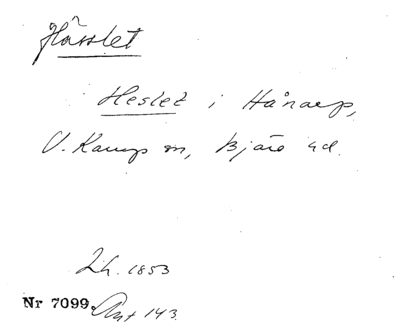 Hässlet
Heslet i Hånarp,
V. Karup sn, Bjäre hd.
Lh. 1853
Nr 7099. Ant 143.